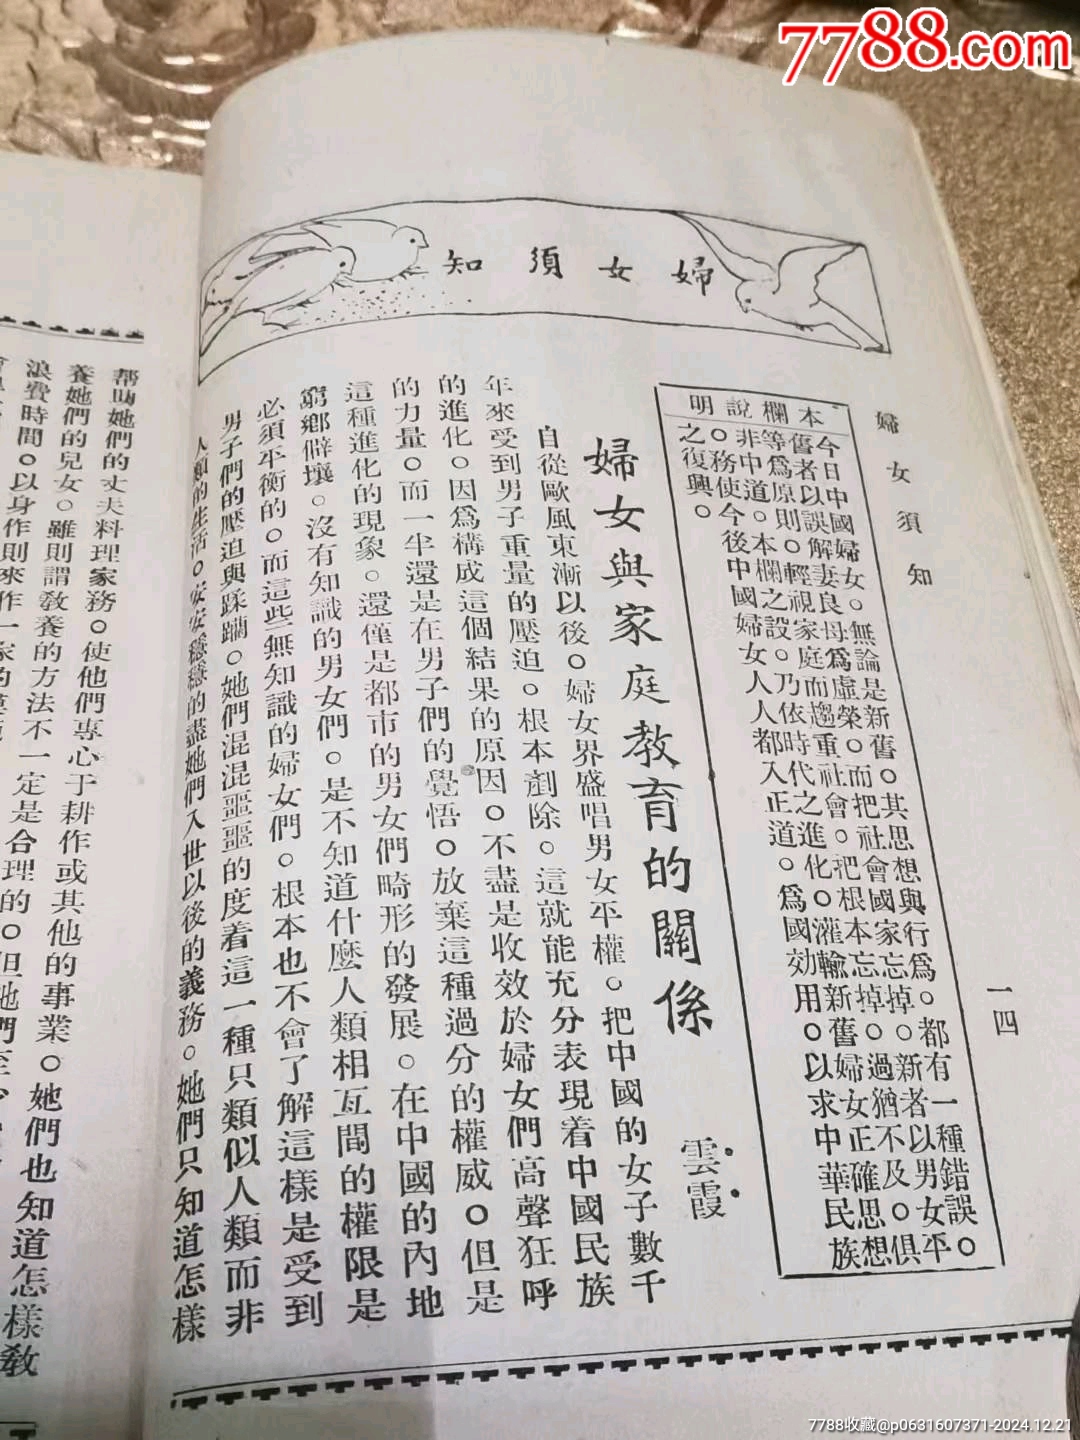 7788.com
婦女須知
一四
婦女須知
本欄說明
今日中國婦女。無論是新舊。其思想與行為。都有一種錯誤。
舊者以誤解妻良母爲虛榮。而把社會國家忘掉。新者以男女平
等爲原則。輕視家庭而趨重社會。把根本忘掉。過猶不及。俱
非中道。本欄之設。乃依時代之進化。灌輸新舊婦女正確思想
。務使今後中國婦女人人都入正道。爲國効用。以求中華民族
之復興。
婦女與家庭教育的關係
雲霞
自從歐風東漸以後。婦女界盛唱男女平權。把中國的女子數千
年來受到男子重量的壓迫。根本剷除。這就能充分表現着中國民族
的進化。因爲構成這個結果的原因。不盡是收效於婦女們高聲狂呼
的力量。而一半還是在男子們的覺悟。放棄這種過分的權威。但是
這種進化的現象。還僅是都市的男女們畸形的發展。在中國的內地
窮鄉僻壤。沒有知識的男女們。是不知道什麼人類相互間的權限是
必須平衡的。而這些無知識的婦女們。根本也不會了解這樣是受到
男子們的壓迫與蹂躪。她們混混噩噩的度着這一種只類似人類而非
人類的生活。安安穩穩的盡她們入世以後的義務。她們只知道怎樣
幫助她們的丈夫料理家務。使他們專心于耕作或其他的事業。她們也知道怎樣教
養她們的兒女。雖則謂教養的方法不一定是合理的。但她們至少
浪費時間。以身作則來作一家的
7788收藏@p0631607371-2024.12.21